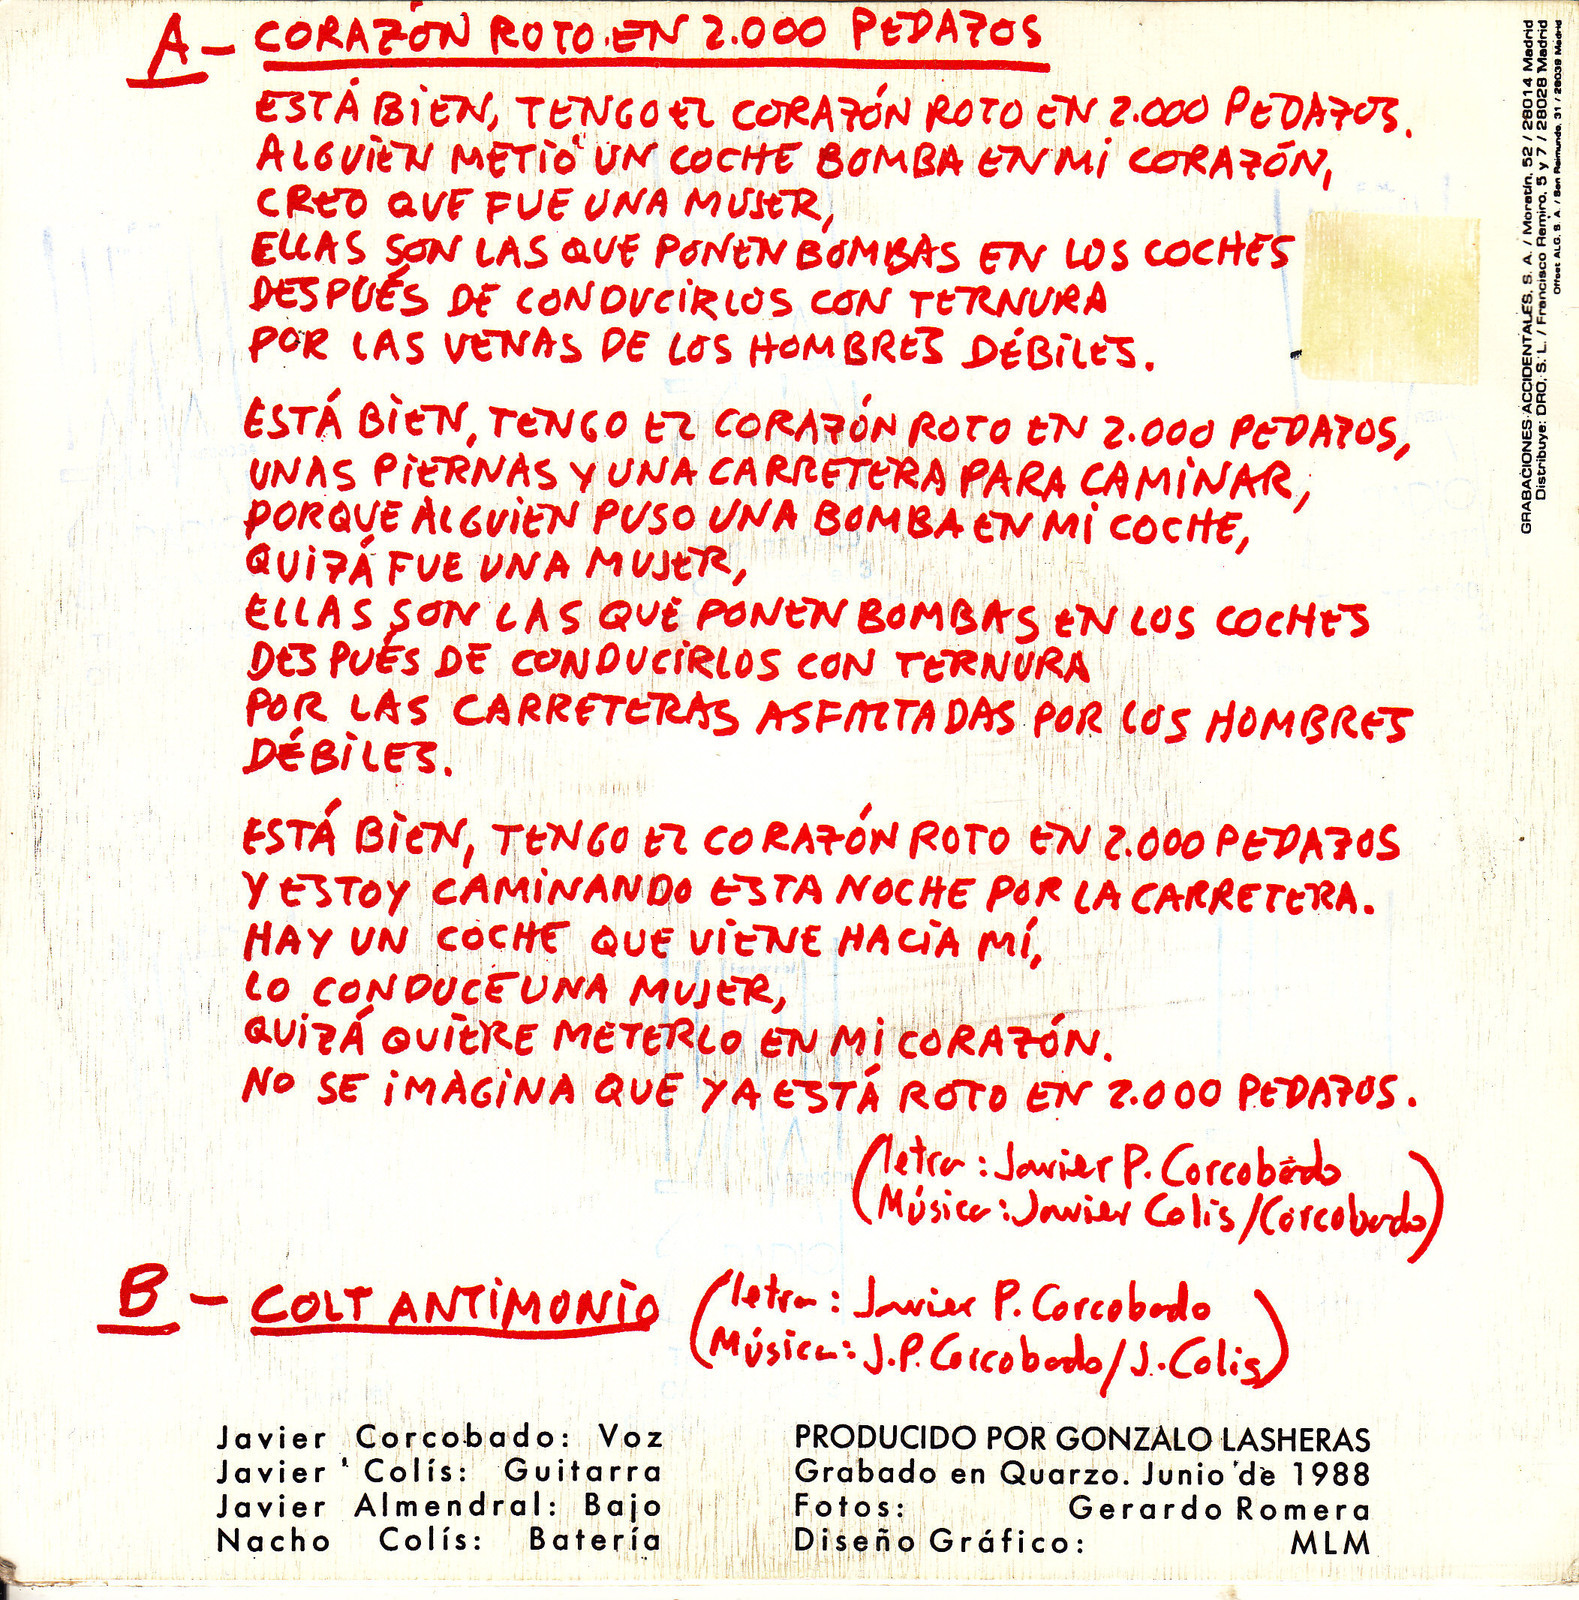 A - CORAZÓN ROTO EN 2.000 PEDAZOS
ESTÁ BIEN, TENGO EL CORAZÓN ROTO EN 2.000 PEDAZOS.
ALGUIEN METIÓ UN COCHE BOMBA EN MI CORAZÓN,
CREO QUE FUE UNA MUJER,
ELLAS SON LAS QUE PONEN BOMBAS EN LOS COCHES
DESPUÉS DE CONDUCIRLOS CON TERNURA
POR LAS VENAS DE LOS HOMBRES DÉBILES.
ESTÁ BIEN, TENGO EL CORAZÓN ROTO EN 2.000 PEDAZOS,
UNAS PIERNAS Y UNA CARRETERA PARA CAMINAR,
PORQUE ALGUIEN PUSO UNA BOMBA EN MI COCHE,
QUIZÁ FUE UNA MUJER,
ELLAS SON LAS QUE PONEN BOMBAS EN LOS COCHES
DESPUÉS DE CONDUCIRLOS CON TERNURA
POR LAS CARRETERAS ASFALTADAS POR LOS HOMBRES
DÉBILES.
ESTÁ BIEN, TENGO EL CORAZÓN ROTO EN 2.000 PEDAZOS
Y ESTOY CAMINANDO ESTA NOCHE POR LA CARRETERA.
HAY UN COCHE QUE VIENE HACIA MÍ,
LO CONDUCE UNA MUJER,
QUIZÁ QUIERE METERLO EN MI CORAZÓN.
NO SE IMAGINA QUE YA ESTÁ ROTO EN 2.000 PEDAZOS.
(letra: Javier P. Corcobado
Música: Javier Colis/Corcobado)
B - COLT ANTIMONIO (letra: Javier P. Corcobado
Música: J.P. Corcobado/J. Colis)
Javier Corcobado: Voz
Javier Colís: Guitarra
Javier Almendral: Bajo
Nacho Colís: Batería
PRODUCIDO POR GONZALO LASHERAS
Grabado en Quarzo. Junio de 1988
Fotos: Gerardo Romera
Diseño Gráfico: MLM
GRABACIONES ACCIDENTALES, S. A. / Moratín, 52 / 28014 Madrid
Distribuye: DRO, S. L. / Francisco Remiro, 5 y 7 / 28028 Madrid
Offset ALG, S. A. / San Raimundo, 31 / 28039 Madrid